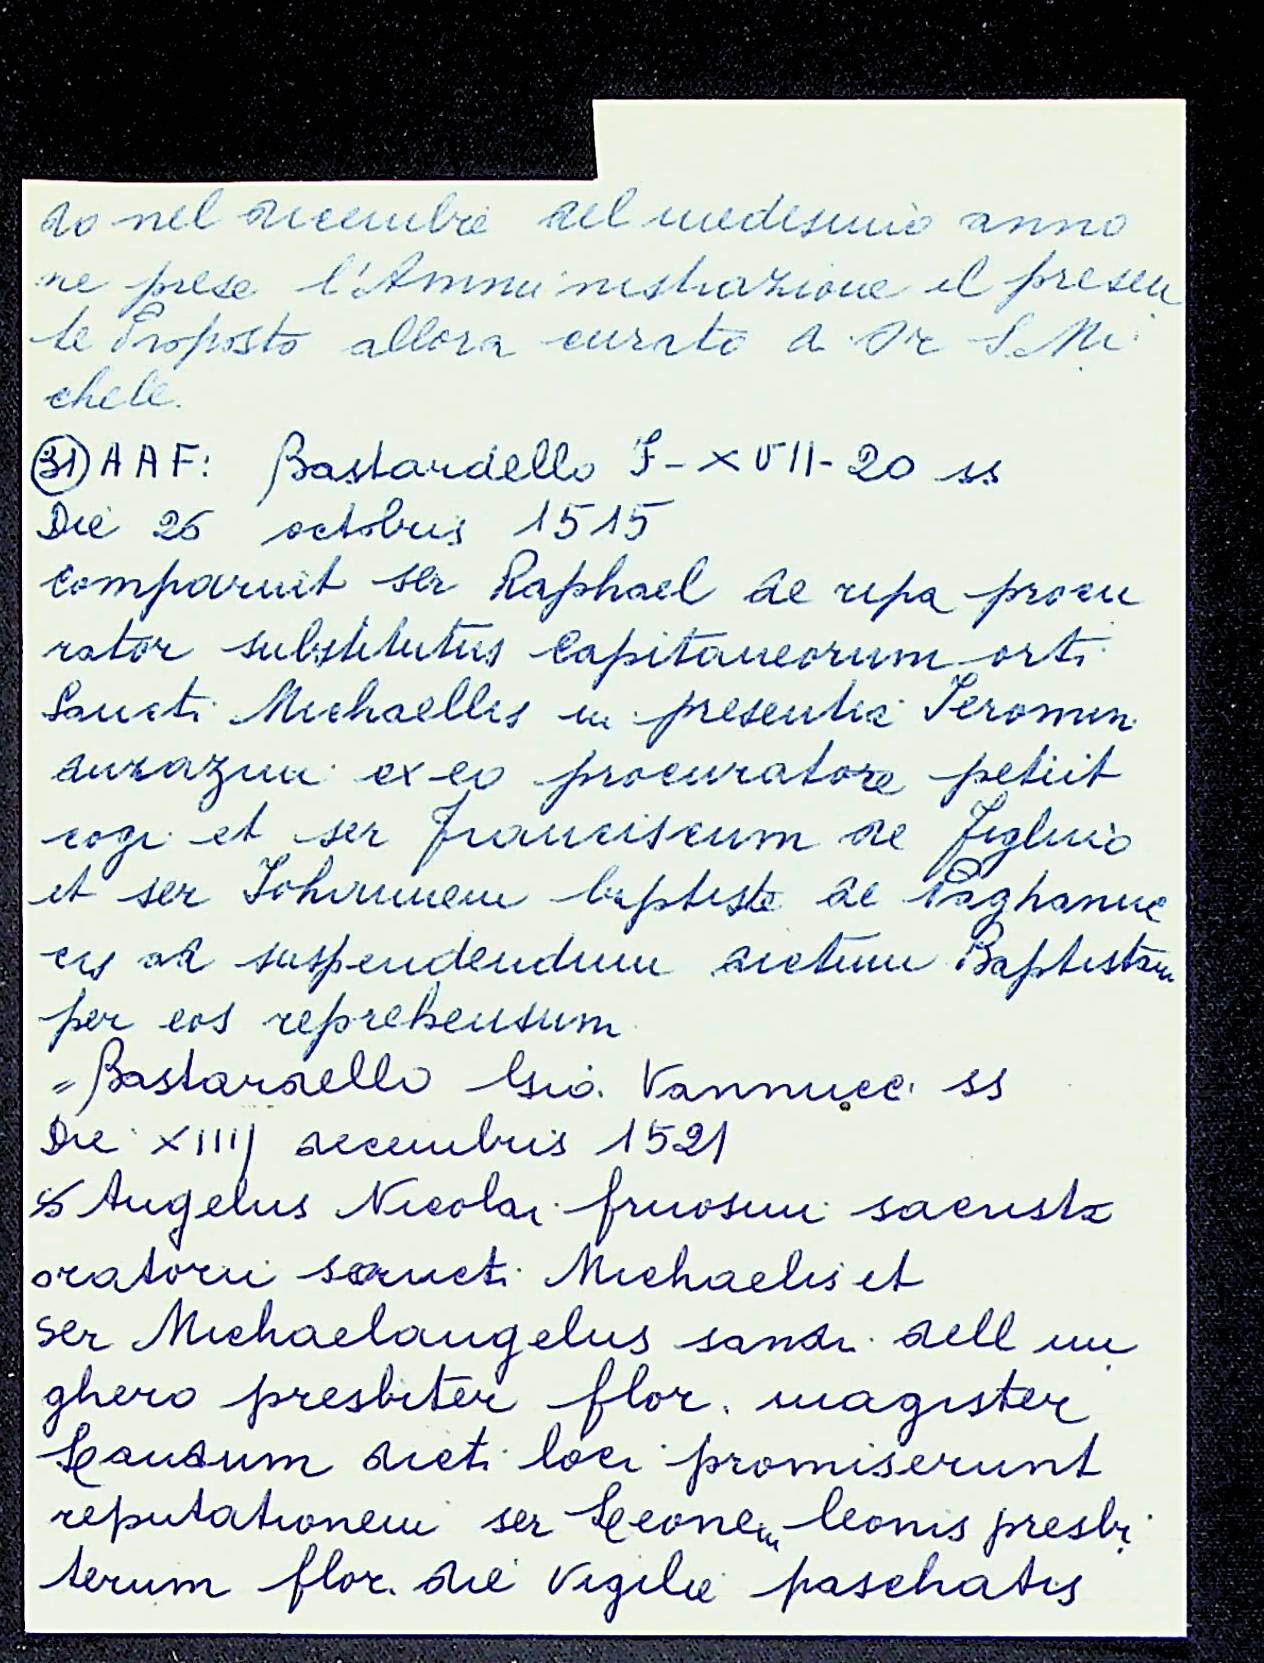 do nel decembre del medesimo anno
ne prese l'Amministrazione il presen
te Proposto allora curato d Or S. Mi
chele.
31) A A F: Bastardello F-XVII-20 ss
Die 26 octobris 1515
comparuit ser Raphael de ripa procu
rator substitutus Capitaneorum orti
Sancti Michaellis in presentia Ieromin
ex eo procuratore petiit
cogi et ser Franciscum de Fighino
et ser Iohannem baptiste de Paghanuc
cis ad suspendendum dictum Baptistam
per eos reprehensum
= Bastardello Gio. Vannucci ss
Die XIIIJ decembris 1521
Angelus Nicolai fruosini sacrista
oratorii sancti Michaelis et
ser Michaelangelus sandri dell un
ghero presbiter flor. magister
Laudum dicti loci promiserunt
reputationem ser Leonem leonis presbi
terum flor. die Vigilie paschatis